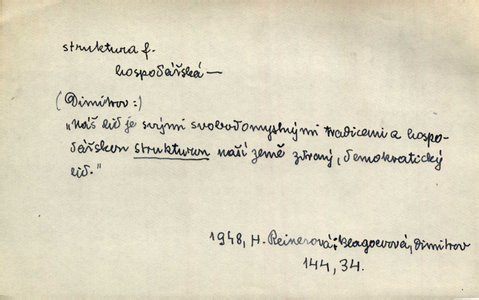 struktura f.
hospodářská —
(Dimitrov:)
"náš lid je svými svobodomyslnými tradicemi a hospo-
dářskou strukturou naší země zdravý, demokratický
lid."
1948, H. Reinerová: Blagoevová, Dimitrov
144, 34.